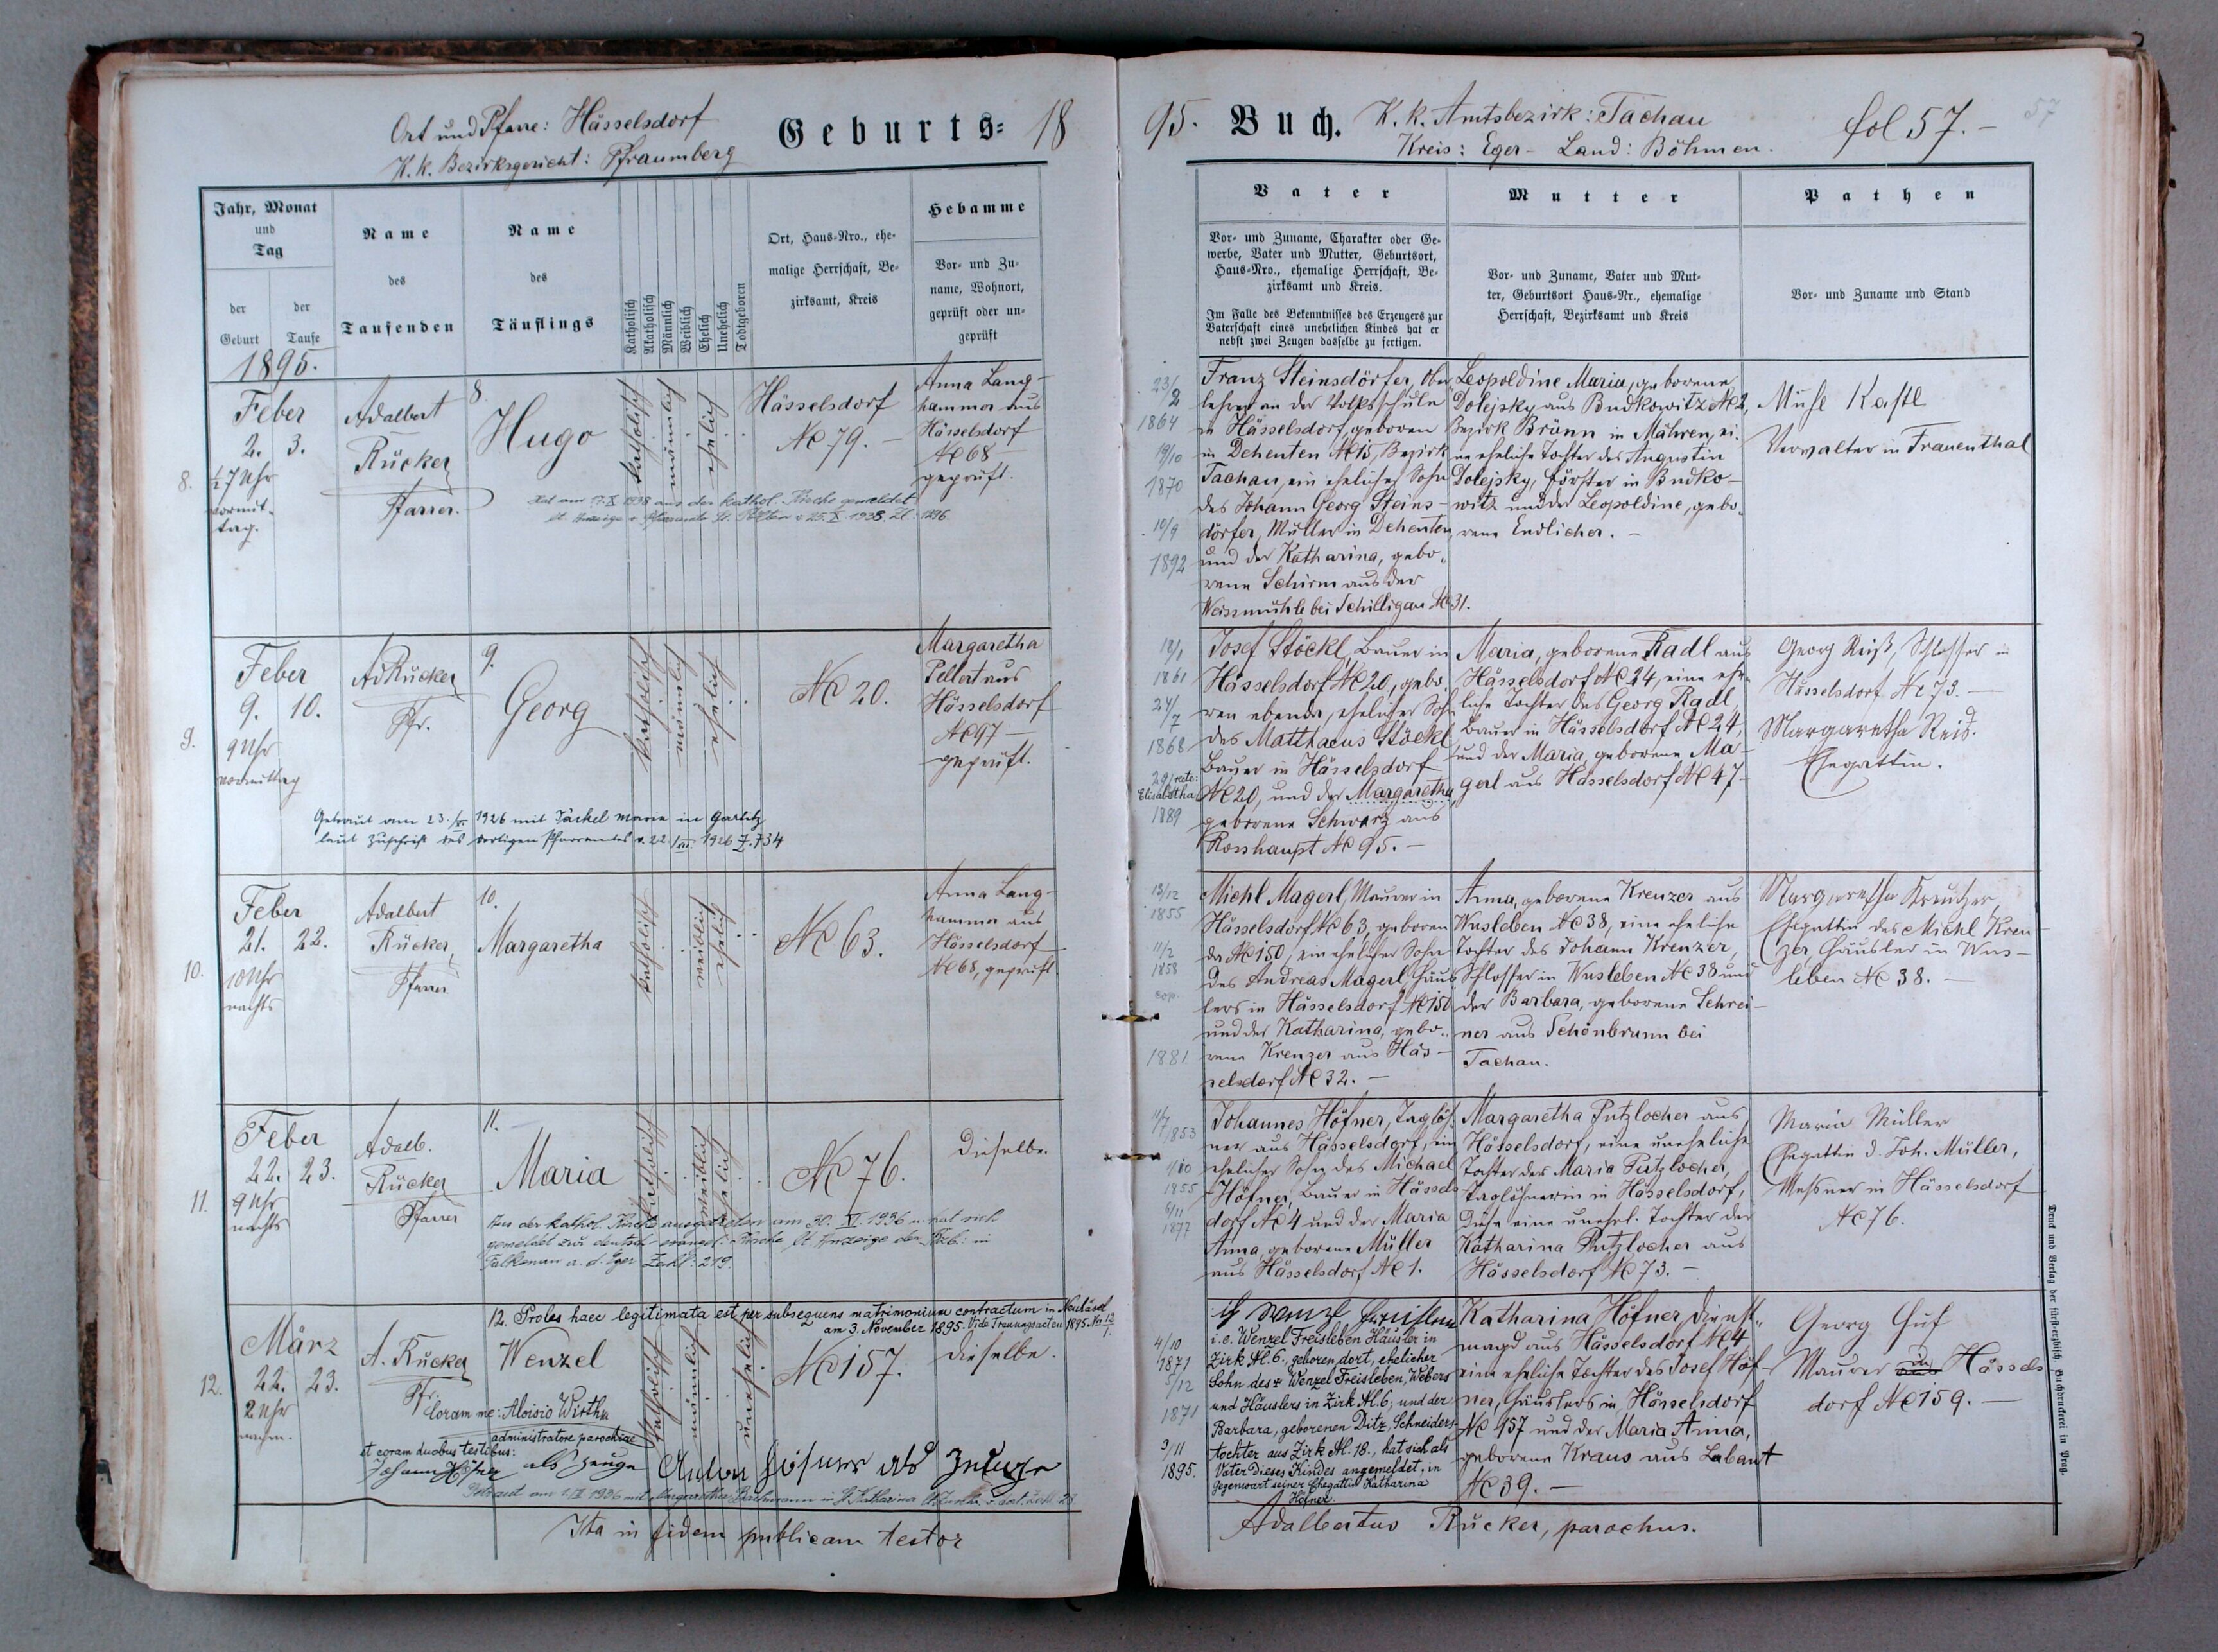 Ort und Pfarre: Hässelsdorf
K. k. Bezirksgericht: Pfraumberg
Geburts= 18
95. Buch.
K. k. Amtsbezirk: Tachau
Kreis: Eger – Land: Böhmen.
fol 57. –
57
Jahr, Monat
und
Tag
der
Geburt
der
Taufe
Name
des
Taufenden
Name
des
Täuflings
Katholisch
Akatholisch
Männlich
Weiblich
Ehelich
Unehelich
Todtgeboren
Ort, Haus-Nro., ehe-
malige Herrschaft, Be-
zirksamt, Kreis
Hebamme
Vor- und Zu-
name, Wohnort,
geprüft oder un-
geprüft
Vater
Vor- und Zuname, Charakter oder Ge-
werbe, Vater und Mutter, Geburtsort,
Haus-Nro., ehemalige Herrschaft, Be-
zirksamt und Kreis.
Im Falle des Bekenntnisses des Erzeugers zur
Vaterschaft eines unehelichen Kindes hat er
nebst zwei Zeugen dasselbe zu fertigen.
Mutter
Vor- und Zuname, Vater und Mut-
ter, Geburtsort Haus-Nr., ehemalige
Herrschaft, Bezirksamt und Kreis
Pathen
Vor- und Zuname und Stand
1895.
8.
Feber
2. 3.
½7 Uhr
vormit-
tag.
Adalbert
Rücker
Pfarrer.
8.
Hugo
katholisch
männlich
ehelich
Hässelsdorf
No 79. –
Anna Lang-
hammer aus
Hässelsdorf
No 68 –
geprüft.
Hat am 7. X 1938 aus der kathol. Kirche gemeldet
lt. Anzeige v. Pfarramte St. Pölten v. 25. X. 1938. Zl. 1296.
23/2
1864
19/10
1870
10/9
1892
Franz Steinsdörfer, Ober-
lehrer an der Volksschule
in Hässelsdorf, geboren
in Dehenten No 15, Bezirk
Tachau, ein ehelicher Sohn
des Johann Georg Steins-
dörfer, Müller in Dehenten
und der Katharina, gebo-
rene Schirm aus der
Weissmühle bei Schilligau No 31.
Leopoldine Maria, geborene
Dolejsky aus Budkowitz No 2,
Bezirk Brünn in Mähren, ei-
ne eheliche Tochter des Augustin
Dolejsky, Förster in Budko-
witz und der Leopoldine, gebo-
rene Endlicher. –
Michl Kastl
Verwalter in Frauenthal
9.
Feber
9. 10.
9 Uhr
vormittag
Ad Rücker
Pfr.
9.
Georg
katholisch
männlich
ehelich
No 20.
Margaretha
Pellert aus
Hässelsdorf
No 97 –
geprüft.
Getraut am 23./ 1926 mit Jäckel Marie in Garlitz
laut Zuschrift des dortigen Pfarramtes v. 22./ 1926 Z. 734
18/1
1861
24/7
1868
29/ recte:
Elisabetha
1889
Josef Stöckl, Bauer in
Hässelsdorf No 20, gebo-
ren ebenda, ehelicher Sohn
des Matthaeus Stöckl
Bauer in Hässelsdorf
No 20, und der Margaretha,
geborene Schwarz aus
Rosshaupt No 95. –
Maria, geborene Radl aus
Hässelsdorf No 24, eine ehe-
liche Tochter des Georg Radl,
Bauer in Hässelsdorf No 24,
und der Maria, geborene Ma-
gerl aus Hässelsdorf No 47 –
Georg Reiß, Schlosser in
Hässelsdorf No 73. –
Margaretha Reis.
Ehegattin.
10.
Feber
21. 22.
10 Uhr
nachts
Adalbert
Rücker,
Pfarrer
10.
Margaretha
katholisch
weiblich
ehelich
No 63.
Anna Lang-
hammer aus
Hässelsdorf
No 68, geprüft.
13/12
1855
11/2
1858
cop.
1881
Michl Magerl, Maurer in
Hässelsdorf No 63, geboren
da No 150, ein ehelicher Sohn
des Andreas Magerl, Häus-
lers in Hässelsdorf No 150
und der Katharina, gebo-
rene Kreuzer aus Häs-
selsdorf No 32. –
Anna, geborene Kreuzer aus
Wusleben No 38, eine eheliche
Tochter des Johann Kreuzer,
Schlosser in Wusleben No 38 und
der Barbara, geborene Schrei-
ner aus Schönbrunn bei
Tachau.
Margaretha Kreutzer,
Ehegattin des Michl Kreu-
zer, Häusler in Wus-
leben No 38. –
11.
Feber
22. 23.
9 Uhr
nachts
Adalb.
Rücker
Pfarrer
11.
Maria
katholisch
weiblich
ehelich
No 76.
Dieselbe.
Aus der kathol. Kirche ausgetreten am 30. XI. 1936 u. hat sich
gemeldet zur deutsch-evangel. Kirche lt. Anzeige der Bzb. in
Falkenau a. d. Eger Zahl: 219.
11/7 1853
1/10
1855
6/11
1877
Johannes Höfner, Taglöh-
ner aus Hässelsdorf, ein
ehelicher Sohn des Michael
Höfner, Bauer in Hässels-
dorf No 4 und der Maria
Anna, geborene Müller
aus Hässelsdorf No 1.
Margaretha Putzlocher aus
Hässelsdorf, eine uneheliche
Tochter der Maria Putzlocher,
Taglöhnerin in Hässelsdorf,
diese eine unehel. Tochter der
Katharina Putzlocher aus
Hässelsdorf No 73. –
Maria Müller
Ehegattin d. Joh. Müller,
Messner in Hässelsdorf
No 76.
12.
März
22. 23.
2 Uhr
nachm.
A. Rücker
Pfr.
12. Proles haec legitimata est per subsequens matrimonium contractum in Neuhäusl
am 3. November 1895. Vide Trauungsacten 1895. No 12/1.
Wenzel
katholisch
männlich
unehelich
No 157.
dieselbe.
Coram me: Aloisio Wirtha
administratore parochiae
et coram duobus testibus:
Johann Höfner als Zeuge
Anton Höfner als Zeuge
Getraut am 1. IX 1936 mit Margaretha Bachmann in St. Katharina
4/10
1871
5/12
1871
3/11
1895.
i. e. Wenzel Freisleben Häusler in
Zirk No. 6. geboren dort, ehelicher
Sohn des † Wenzel Freisleben, Webers
und Häuslers in Zirk No. 6, und der
Barbara, geborenen Ditz, Schneiders-
tochter aus Zirk No. 18., hat sich als
Vater dieses Kindes angemeldet, in
Gegenwart seiner Ehegattin Katharina
Höfner.
Katharina Höfner, Dienst-
magd aus Hässelsdorf No 4
eine eheliche Tochter des Josef Höf-
ner, Häuslers in Hässelsdorf
No 157 und der Maria Anna,
geborene Kraus aus Labant
No 39. –
Georg Huf
Maurer in Hässels
dorf No 159. –
Ita in fidem publicam testor
Adalbertus Rücker, parochus.
Druck und Verlag der fürst-erzbisch. Buchdruckerei in Prag.